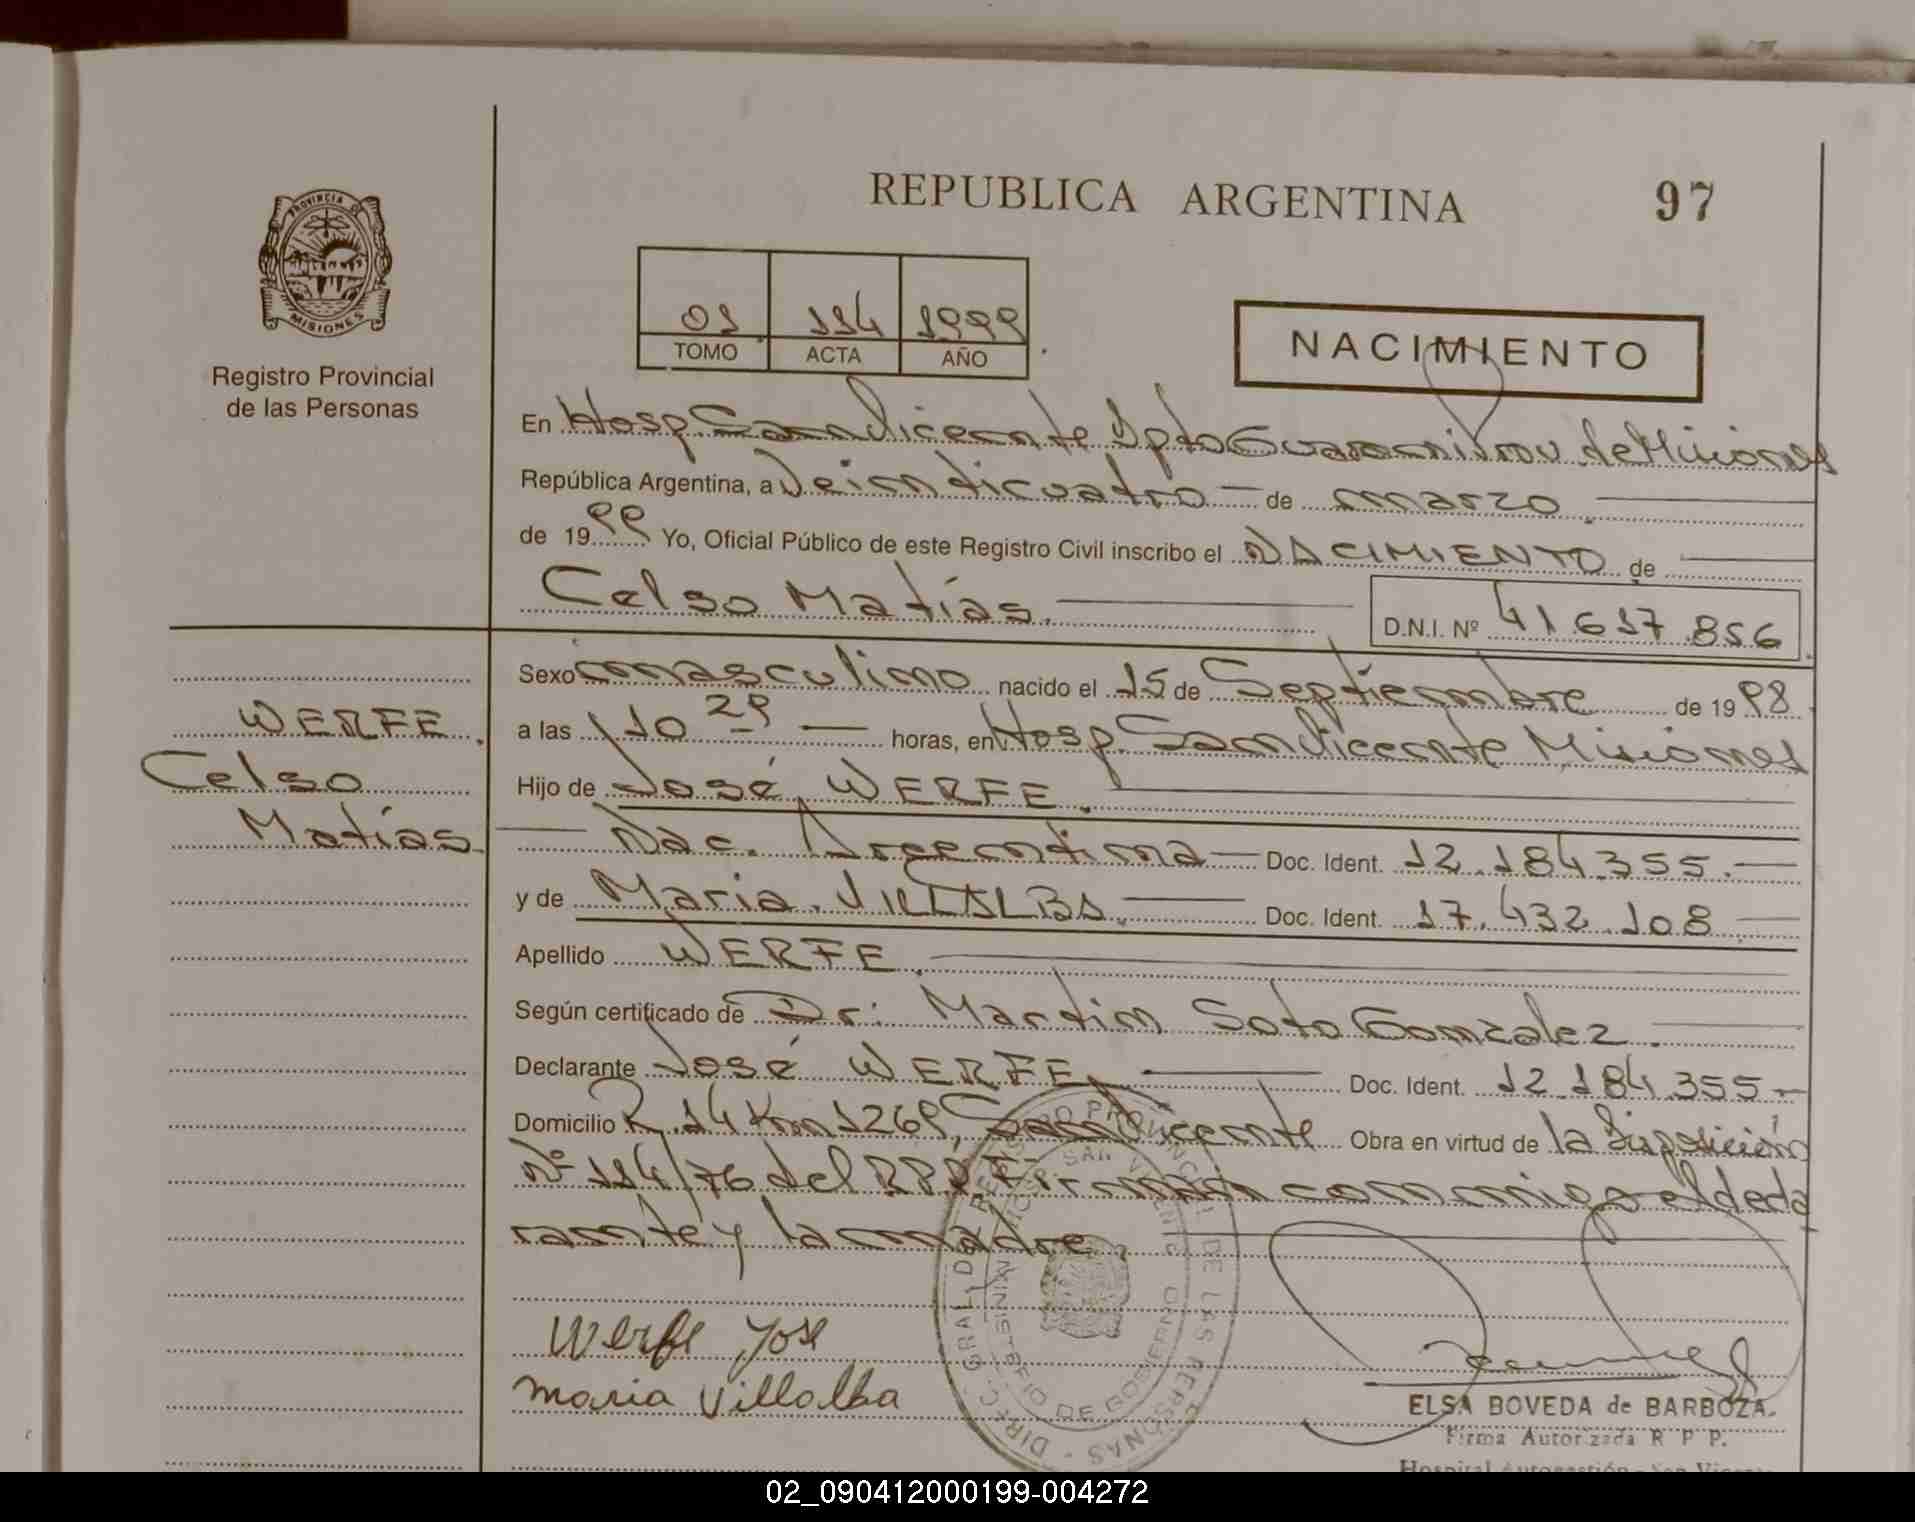 REPUBLICA ARGENTINA
97
PROVINCIA DE
MISIONES
Registro Provincial
de las Personas
01 114 1999
TOMO ACTA AÑO
NACIMIENTO
En Hosp. San Vicente Dpto Guaraní Prov. de Misiones
República Argentina, a Veinticuatro de marzo
de 1999 Yo, Oficial Público de este Registro Civil inscribo el NACIMIENTO de
Celso Matías.
D.N.I. Nº 41.617.856
Sexo masculino nacido el 15 de Septiembre de 1998
a las 10 29 horas, en Hosp. San Vicente Misiones
Hijo de José WERFE.
Nac. Argentina Doc. Ident. 12.184.355.
y de Maria VILLALBA. Doc. Ident. 17.432.108
Apellido WERFE.
Según certificado de Dr: Martin Soto Gonzalez.
Declarante José WERFE Doc. Ident. 12.184.355.-
Domicilio R. 14 Km 1269, San Vicente Obra en virtud de la Disposición
Nº 114/76 del RPP. Firman conmigo el decla
rante y la madre.
WERFE.
Celso
Matías.
Werfe Jose
maria Villalba
DIREC. GRAL. DE REGISTRO PROVINCIAL DE LAS PERSONAS
MINISTERIO DE GOBIERNO
SAN VICENTE
ELSA BOVEDA de BARBOZA.
Firma Autorizada R P P.
Hospital Autogestión - San Vicente
02_090412000199-004272